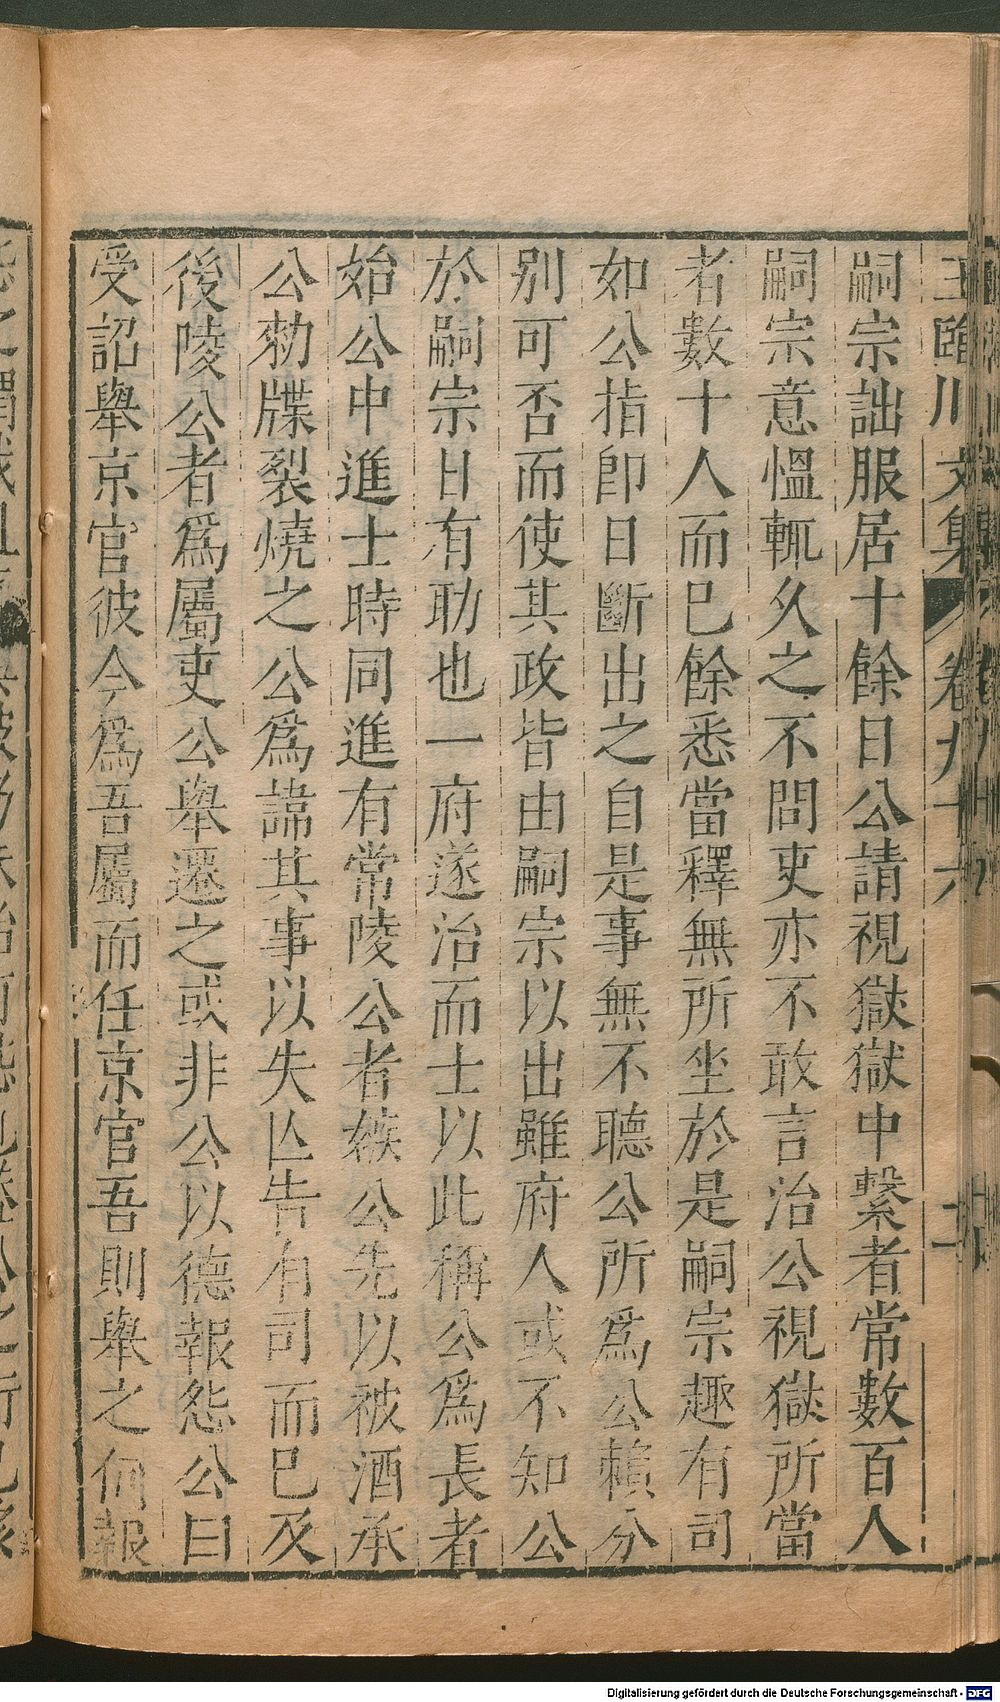 王臨川文集 卷九十六 二
嗣宗詘服居十餘日公請視獄獄中繫者常數百人
嗣宗意慍輒久之不問吏亦不敢言治公視獄所當
者數十人而已餘悉當釋無所坐於是嗣宗趣有司
如公指即日斷出之自是事無不聽公所爲公賴分
別可否而使其政皆由嗣宗以出雖府人或不知公
於嗣宗日有助也一府遂治而士以此稱公爲長者
始公中進士時同進有常陵公者嫉公先以被酒承
公勑牒裂燒之公爲諱其事以失亾告有司而已及
後陵公者爲屬吏公舉遷之或非公以德報怨公曰
受詔舉京官彼今爲吾屬而任京官吾則舉之何報
Digitalisierung gefördert durch die Deutsche Forschungsgemeinschaft - DFG